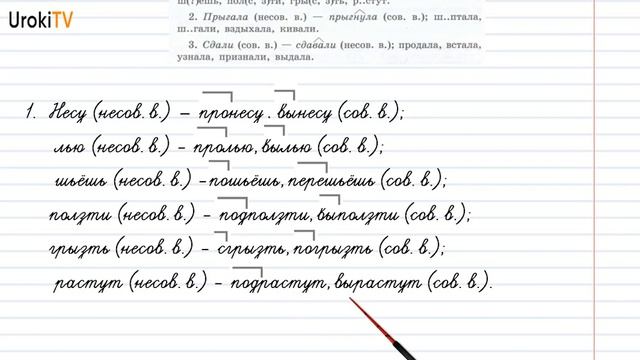 UrokiTV
ш(?)ешь, пол(с, з)ти, гры(с, з)ть, р..стут.
2. Прыгала (несов. в.) — прыгнула (сов. в.); ш..птала,
ш..гали, вздыхала, кивали.
3. Сдали (сов. в.) — сдавали (несов. в.); продала, встала,
узнала, признали, выдала.
1. Несу (несов. в.) – пронесу. вынесу (сов. в.);
лью (несов. в.) – пролью, вылью (сов. в.);
шьёшь (несов. в.) – пошьёшь, перешьёшь (сов. в.);
ползти (несов. в.) – подползти, выползти (сов. в.);
грызть (несов. в.) – сгрызть, погрызть (сов. в.);
растут (несов. в.) – подрастут, вырастут (сов. в.).